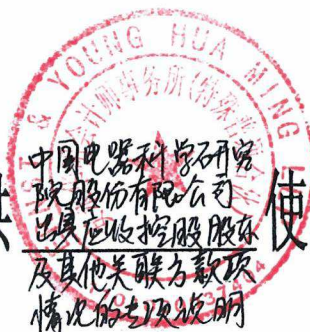 ERNST & YOUNG HUA MING
会计师事务所(特殊普通合伙)
中国电器科学研究
院股份有限公司
出具应收控股股东
及其他关联方款项
情况的专项说明
使